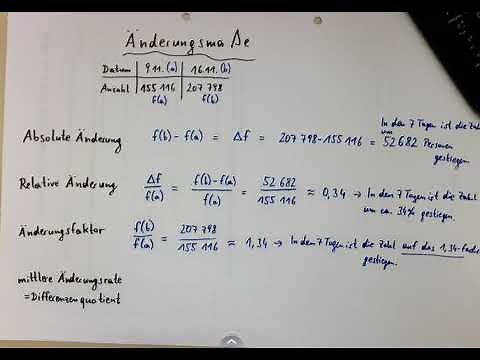 Änderungsmaße
Datum 9.11. (a) 16.11. (b)
Anzahl 155 116 207 798
f(a) f(b)
Absolute Änderung f(b) - f(a) = Δf = 207 798 - 155 116 = 52 682 Personen
In den 7 Tagen ist die Zahl
um
gestiegen.
Relative Änderung Δf/f(a) = f(b)-f(a)/f(a) = 52 682/155 116 ≈ 0,34 → In den 7 Tagen ist die Zahl
um ca. 34% gestiegen.
Änderungsfaktor f(b)/f(a) = 207 798/155 116 ≈ 1,34 → In den 7 Tagen ist die Zahl auf das 1,34-fache
gestiegen.
mittlere Änderungsrate
= Differenzenquotient